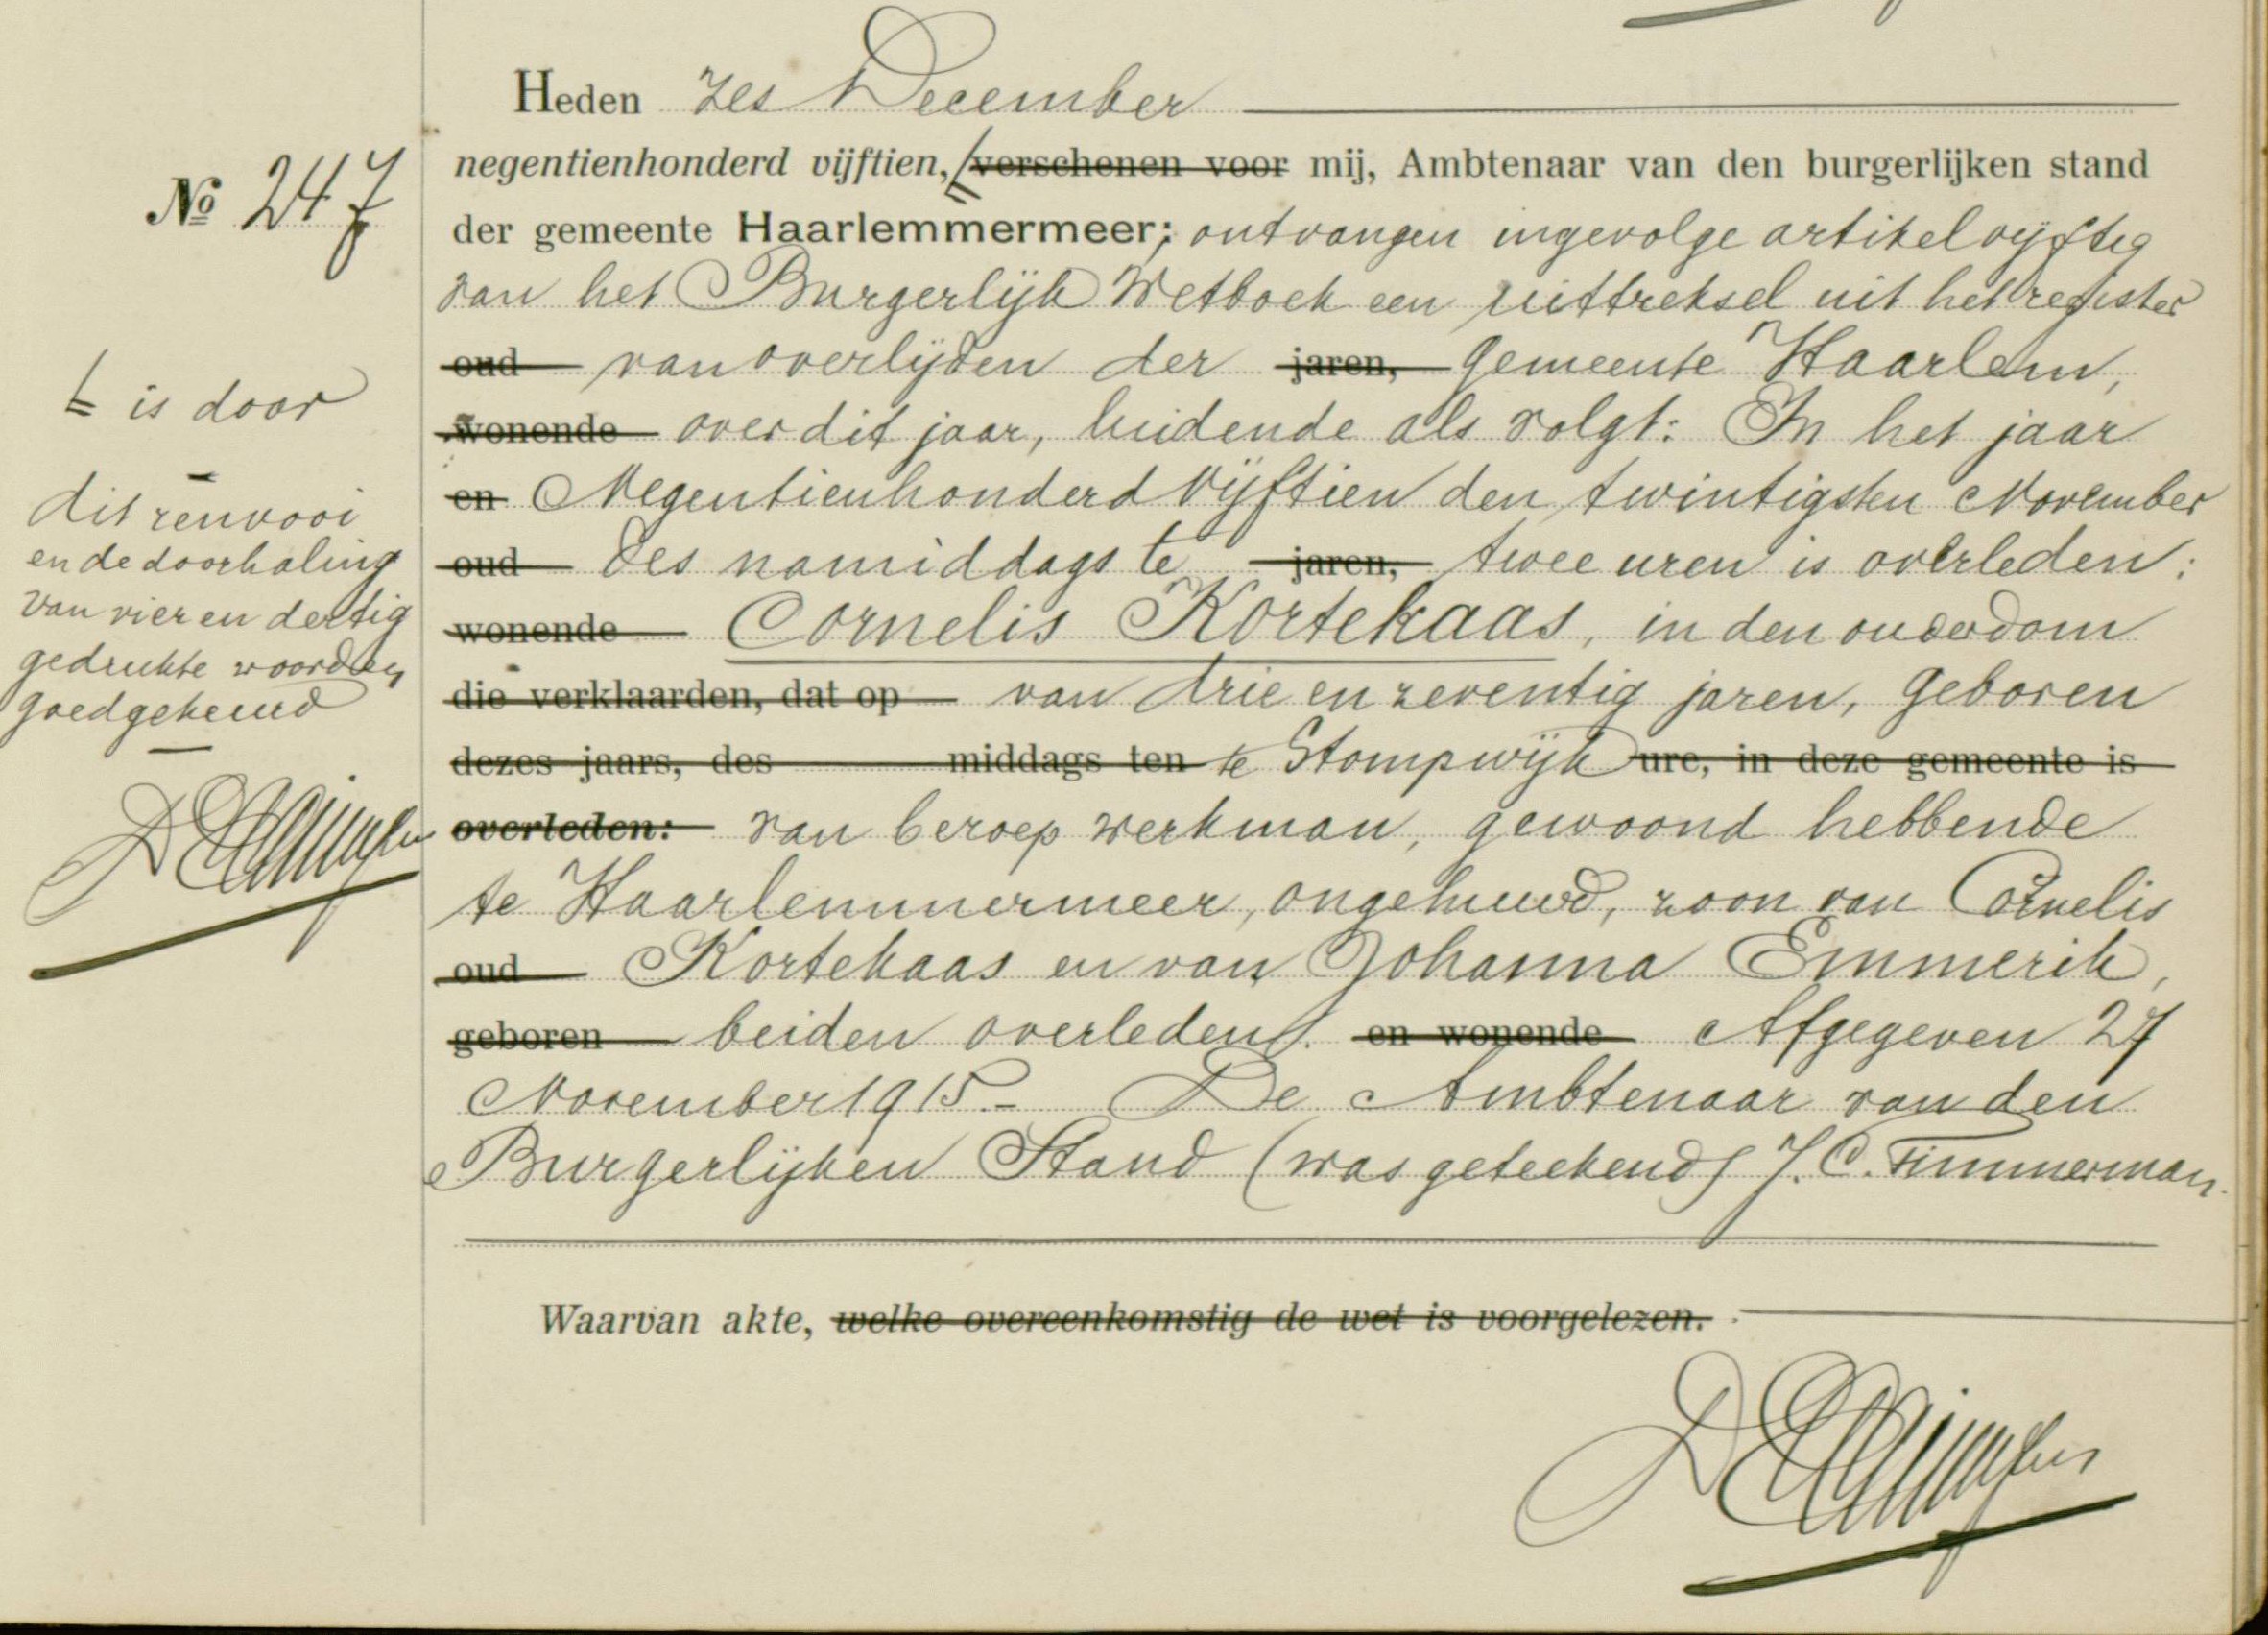 Heden zes December
negentienhonderd vijftien, verschenen voor mij, Ambtenaar van den burgerlijken stand
№ 247
der gemeente Haarlemmermeer; ontvangen ingevolge artikel vijftig
van het Burgerlijk Wetboek een uittreksel uit het register
oud van overlijden der jaren, gemeente Haarlem,
is door
wonende over dit jaar, luidende als volgt: In het jaar
en Negentienhonderd vijftien den twintigsten November
dit renvooi
en de doorhaling
van vier en dertig
gedrukte woorden
goedgekeurd
oud des namiddags te jaren, twee uren is overleden:
wonende Cornelis Kortekaas, in den ouderdom
die verklaarden, dat op van drie en zeventig jaren, geboren
dezes jaars, des middags ten te Stompwijk ure, in deze gemeente is
overleden: van beroep werkman, gewoond hebbende
te Haarlemmermeer, ongehuwd, zoon van Cornelis
oud Kortekaas en van Johanna Emmerik,
geboren beiden overleden. en wonende Afgegeven 27
November 1915.- De Ambtenaar van den
Burgerlijken Stand (was geteekend) J. C. Timmerman.
Waarvan akte, welke overeenkomstig de wet is voorgelezen.